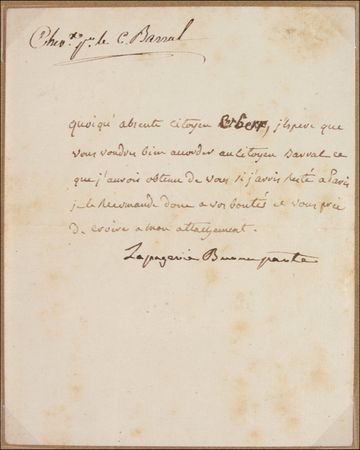 le C. Barral
quoiqu'absente citoyen j'espere que
vous voudrez bien accorder au citoyen Barral ce
que j'aurois obtenu de vous si j'avois resté a Paris
je le recomande donc a vos bontés et vous prie
de croire a mon attachement.
Lapagerie Buonaparte